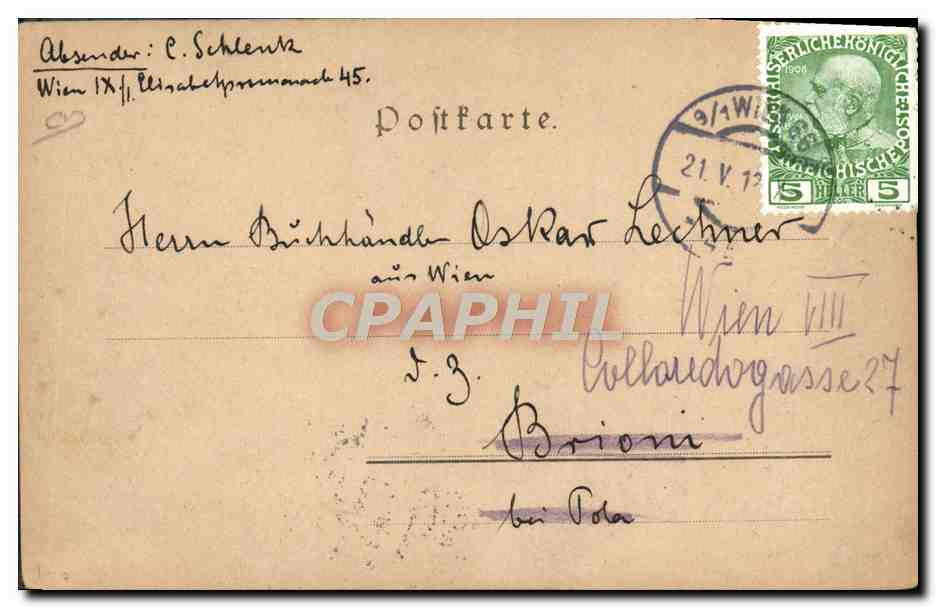 Absender: C. Schlenk
Wien IX/1, Elisabethpromenade 45.
Postkarte.
9/1 Wien 66
21. V. 12
KAISERLICHE KÖNIGLICHE
1908
5 HELLER 5
Herrn Buchhändler Oskar Lechner
aus Wien
CPAPHIL
Wien VIII
d. Z.
Colloredogasse 27
Brioni
bei Pola